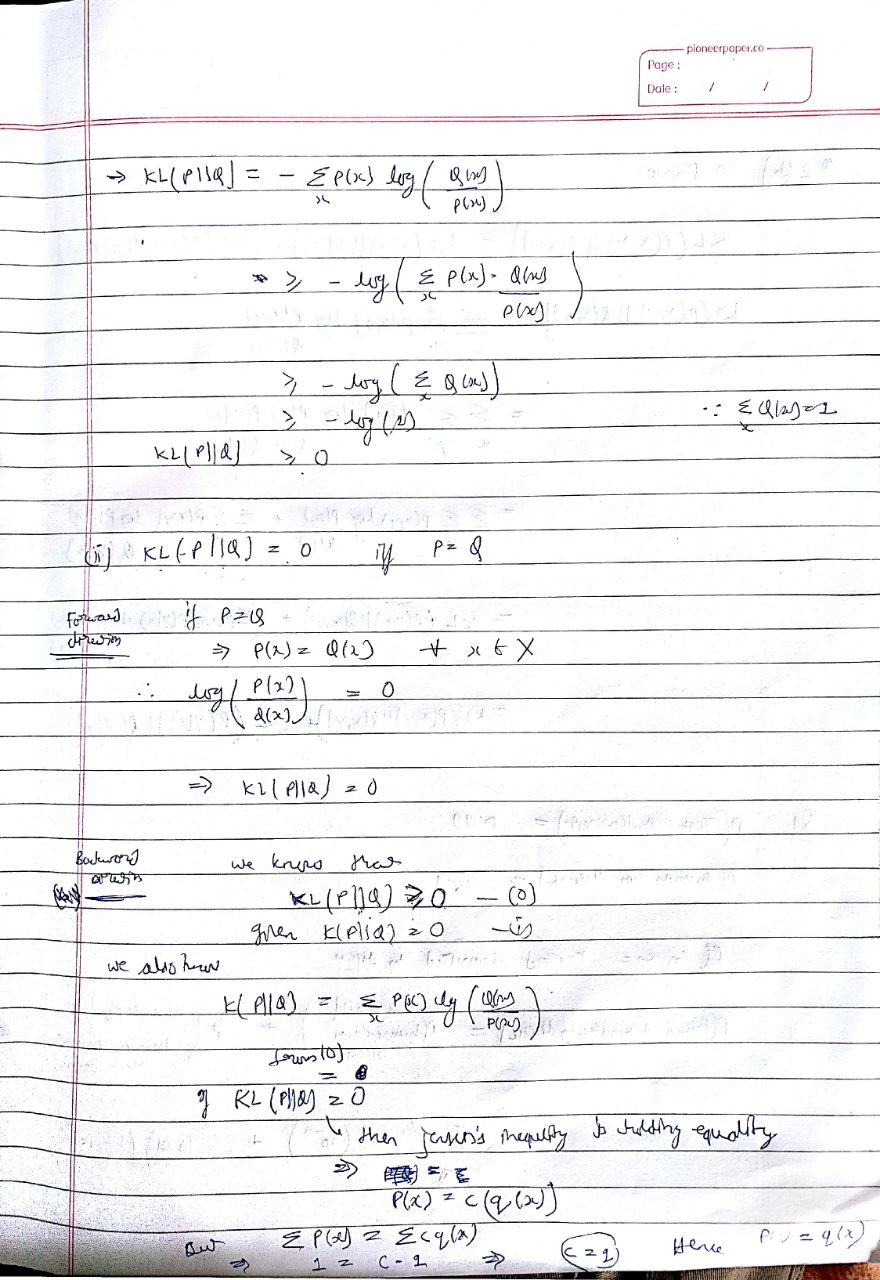 pioneerpaper.co
Page :
Date : / /
→ KL(P||Q] = - Σ_x P(x) log ( Q(x) / P(x) )
≥ - log ( Σ_x P(x) · Q(x) / P(x) )
≥ - log ( Σ_x Q(x) )
≥ - log (1) ∵ Σ_x Q(x) = 1
KL(P||Q) ≥ 0
(ii) KL(P||Q) = 0 iff P = Q
Forward direction if P = Q
⇒ P(x) = Q(x) ∀ x ∈ X
∴ log ( P(x) / Q(x) ) = 0
⇒ KL(P||Q) = 0
Backward we know that
KL(P||Q) ≥ 0 — (0)
given K(P||Q) = 0 — (i)
we also know
K(P||Q) = Σ_x P(x) log ( Q(x) / P(x) )
from (0)
= 0
if KL(P||Q) = 0
↳ then jensen's inequality is holding equality
⇒
P(x) = c(q(x)]
But Σ P(x) = Σ c q(x)
⇒ 1 = c - 1 ⇒ c = 1 Hence P( ) = q(x)